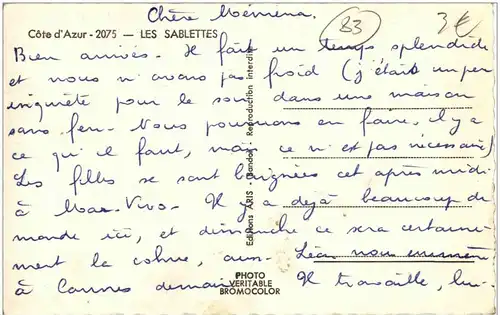 Chère Mémena.
83
3€
Côte d'Azur - 2075 — LES SABLETTES
Bien arrivés. Il fait un temps splendide
et nous n'avons pas froid (j'étais un peu
inquiète pour le soir dans une maison
sans feu. Nous pourrions en faire, il y a
ce qu'il faut, mais ce n'est pas nécessaire)
Les filles se sont baignées cet après midi
à Mar-Vivo. Il y a déjà beaucoup de
monde ici, et dimanche ce sera certaine-
ment la cohue, aussi Léon nous emmène
à Cannes demain. Il travaille, lui-
Editions ARIS - Bandol - Reproduction interdite
PHOTO
VERITABLE
BROMOCOLOR